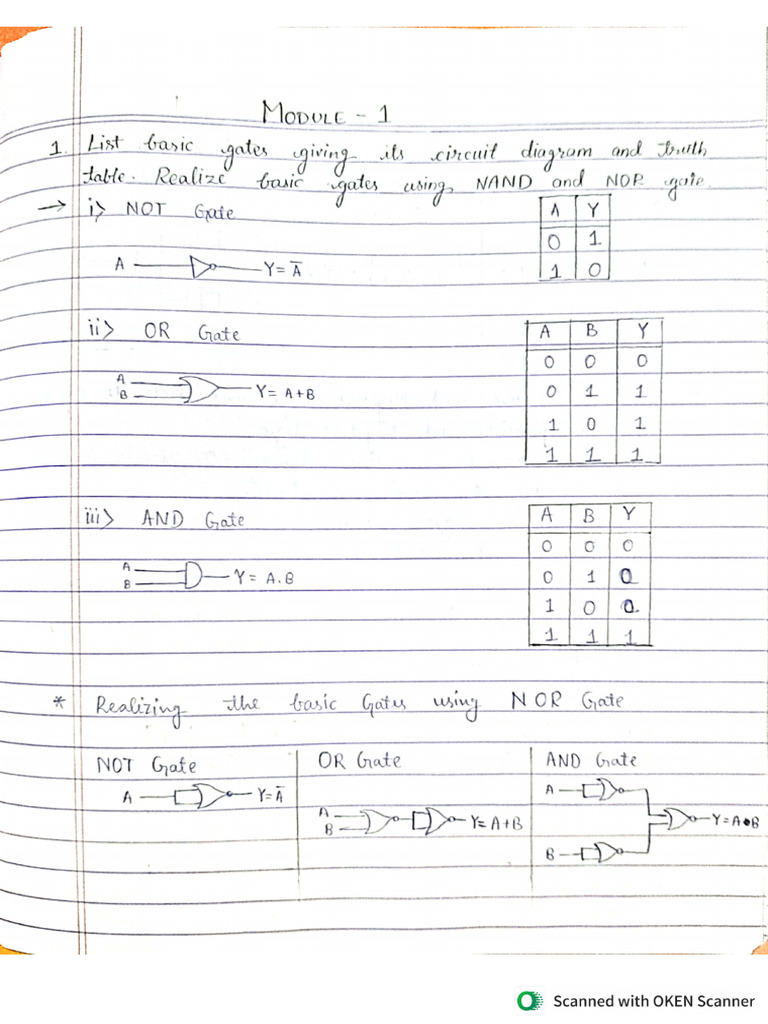 MODULE - 1
1. List basic gates giving its circuit diagram and truth
table. Realize basic gates using NAND and NOR gate.
→ i> NOT Gate
A Y
0 1
1 0
A Y = A̅
ii> OR Gate
A B Y
0 0 0
0 1 1
1 0 1
1 1 1
A
B Y = A+B
iii> AND Gate
A B Y
0 0 0
0 1 0
1 0 0
1 1 1
A
B Y = A.B
* Realizing the basic Gates using NOR Gate
NOT Gate OR Gate AND Gate
A Y=A̅
A
B Y= A+B
A
B Y=A•B
Scanned with OKEN Scanner